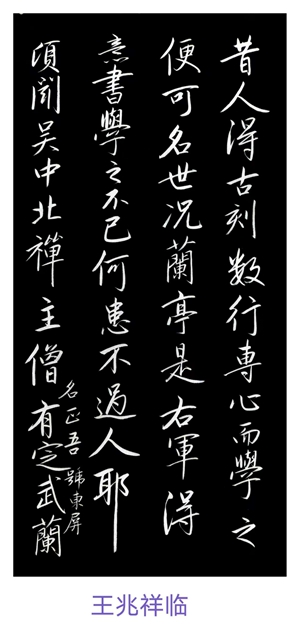 昔人得古刻数行専心而學之
便可名世况蘭亭是右軍得
意書學之不已何患不過人耶
頃聞吴中北禪主僧名正吾號東屏有定武蘭
王兆祥临